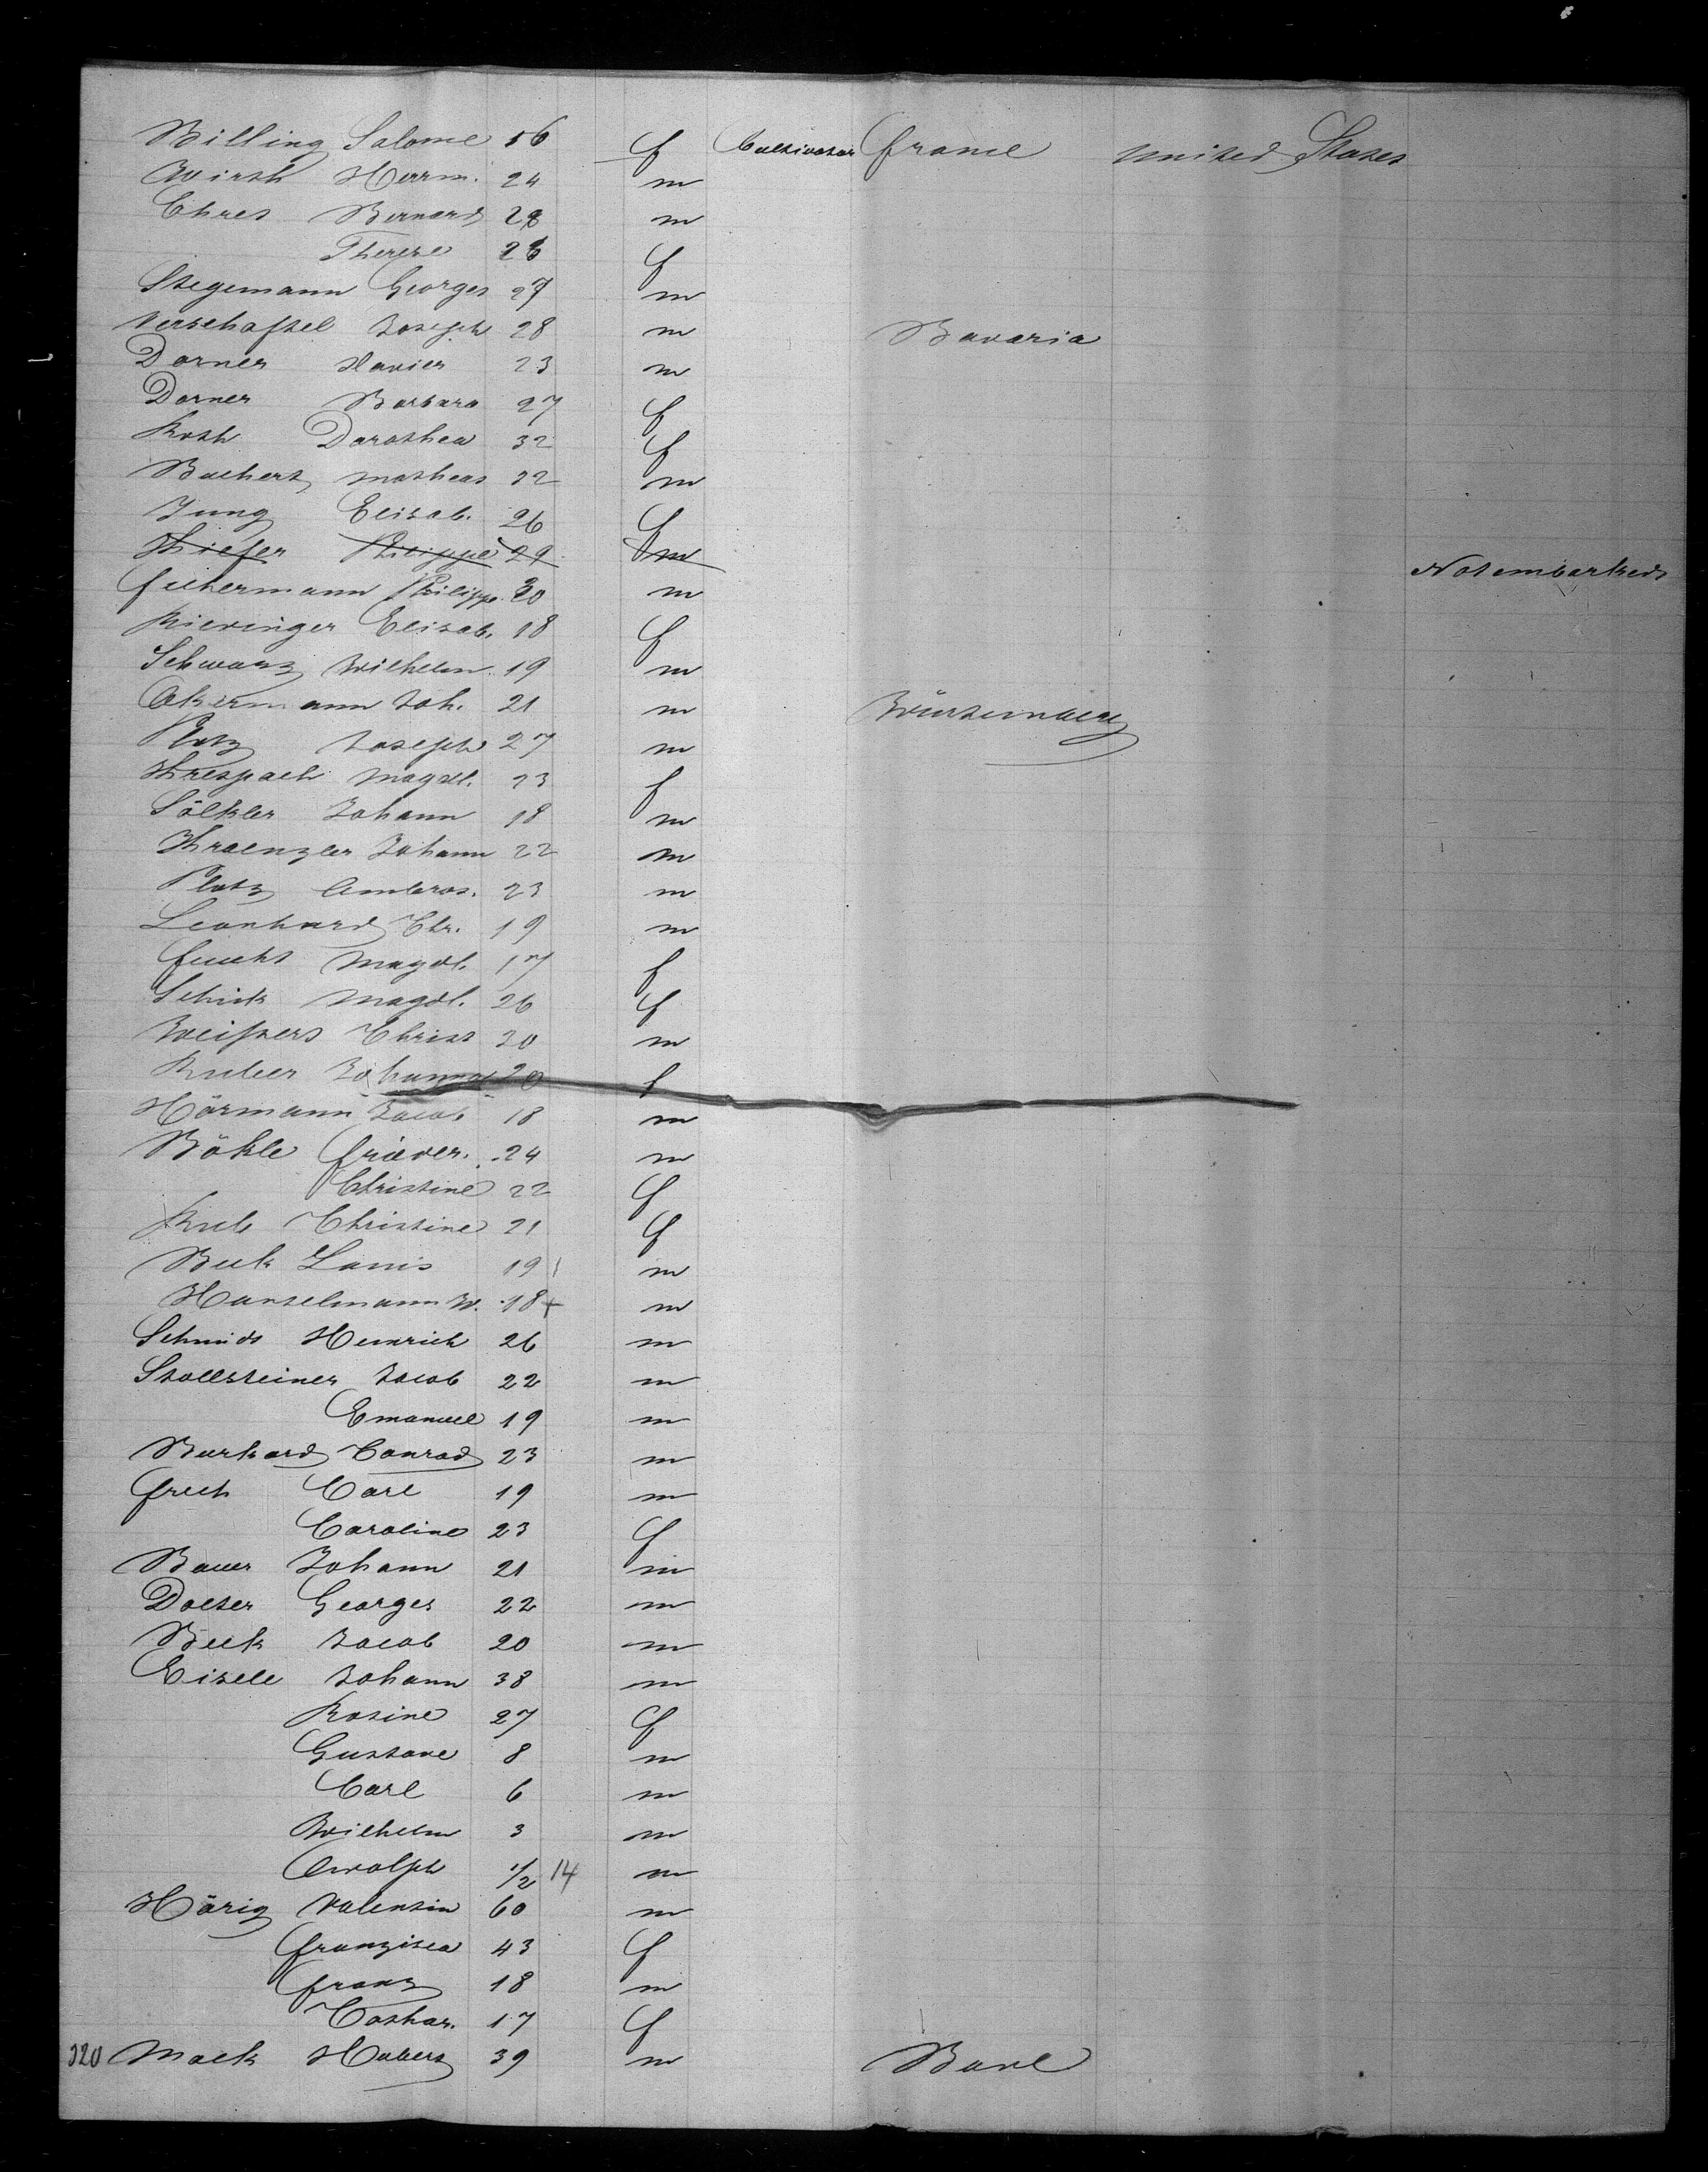 Billing Salome 16 f Cultivator France United States
Wirth Herrm. 24 m
Ehres Bernard 28 m
Therese 26 f
Stegemann Georges 27 m
Verschaffel Joseph 28 m Bavaria
Dorner Xavier 23 m
Dorner Barbara 27 f
Roth Dorothea 32 f
Bachert Matheas 32 m
Jung Elisab. 26 f
Kiefer Philippe 29 m Not embarked
Fuhermann Philippe 20 m
Kieringer Elisab. 18 f
Schwarz Wilhelm 19 m
Akermann Joh. 21 m Würtemberg
Plotz Joseph 27 m
Krespach Magdl. 23 f
Sölkler Johann 18 m
Kraenzler Johann 22 m
Plotz Ambros. 23 m
Leonhard Chr. 19 m
Feucht Magdl. 17 f
Schik Magdl. 26 f
Weissert Christ 30 m
Johanna 20 f
Hörmann Jacob 18 m
Bökle Frieder. 24 m
Christine 22 f
Kub Christine 21 f
Beck Louis 19 m
Hanselmann W. 18 + m
Schmidt Heinrich 26 m
Stollsteiner Jacob 22 m
Emanuel 19 m
Burkard Conrad 23 m
Frech Carl 19 m
Caroline 23 f
Bauer Johann 21 m
Dolter Georges 22 m
Beck Jacob 20 m
Eisele Johann 38 m
Rosine 27 f
Gustave 8 m
Carl 6 m
Wilhelm 3 m
Adolph 1/2 14 m
Hörig Valentin 60 m
Franzisca 43 f
Franz 18 m
Cathar. 17 f
320 Mack Hubert 39 m Bade